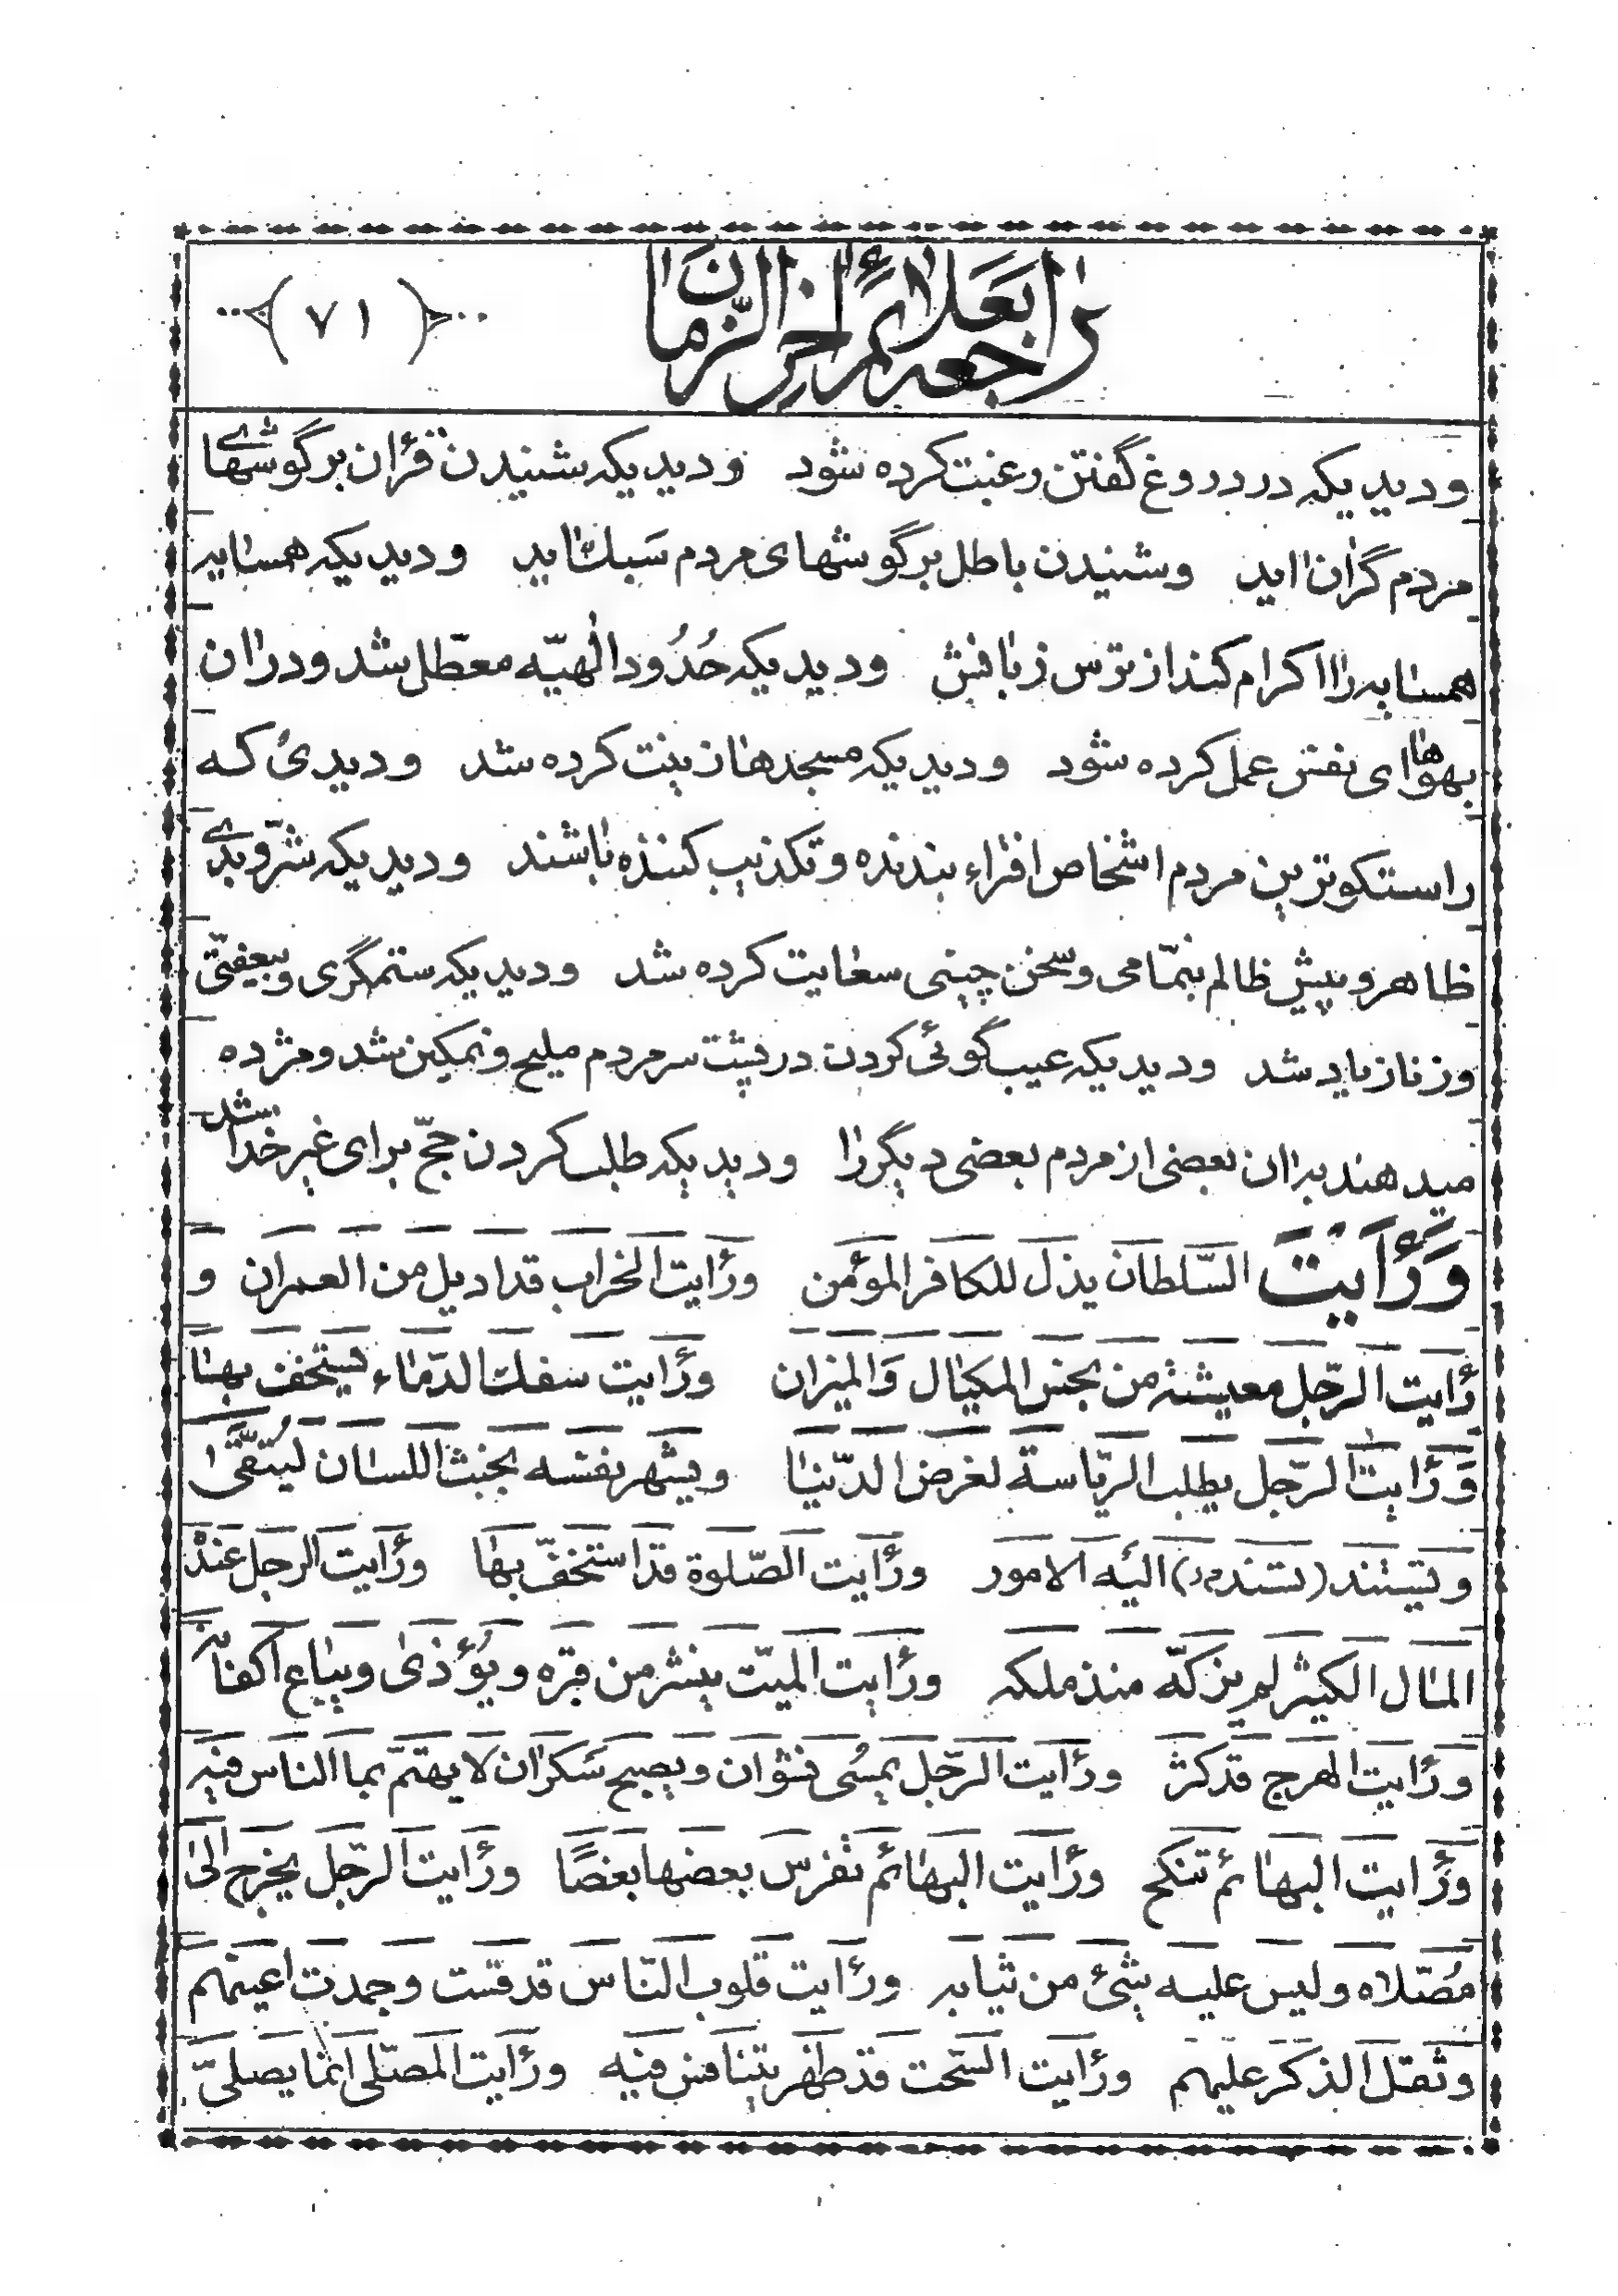 راجعه بعلائم اخر الزّمان
﴿ ۷۱ ﴾
و دیدیکه در دروغ گفتن رغبت کرده شود و دیدیکه شنیدن قرأن بر گوشهای
مردم گران اید و شنیدن باطل بر گوشهای مردم سَبك اید و دیدیکه همسایه
همسایه را اکرام کند از ترس زبانش و دیدیکه حُدُود الهیّه معطّل شد و در ان
بهواهای نفس عمل کرده شود و دیدیکه مسجدها زینت کرده شد و دیدی که
راستکوترین مردم اشخاص افتراء بندنده و تکذیب کننده باشند و دیدیکه شرّ و بدی
ظاهر و پیش ظالم بنمّامی و سخن چینی سعایت کرده شد و دیدیکه ستمگری و بیعفّتی
و زنا زیاد شد و دیدیکه عیب گوئی کردن در پشت سر مردم ملیح و نمکین شد و مژده
میدهند بران بعضی از مردم بعضی دیگر را و دیدیکه طلب کردن حجّ برای غیر خدا شد
وَرَأَیْتَ السّلطان یذل للکافر المؤمن ورأیت الخراب قد ادیل من العمران و
رأیت الرّجل معیشته من بخس المکیال وَالمیزان ورأیت سفك الدّماء یستخف بها
وَرَأیت الرّجل یطلب الرّیاسة لغرض الدّنیا ویشهر نفسه بخبث اللسان لیُتّقیٰ
وتستند (یسند) الیه الامور ورأیت الصّلوة قد استخفّ بها ورأیت الرجل عنده
المال الکثیر لم یزکّه منذ ملکه ورأیت المیّت ینشر من قبره ویُؤذیٰ ویباع اکفانه
ورأیت الهرج قد کثر ورأیت الرّجل یمسُی نشوان ویصبح سَکران لا یهتمّ بما الناس فیه
ورأیت البهائم تنکح ورأیت البهائم تفرس بعضها بعضًا ورأیت الرّجل یخرج الیٰ
مُصّلاه ولیس علیه شئ من ثیابه ورأیت قلوب النّاس قد قست وجمدت اعینهم
وثقل الذکر علیهم ورأیت السّحت قد ظهر یتنافس فیه ورأیت المصلّی انما یصلیّ